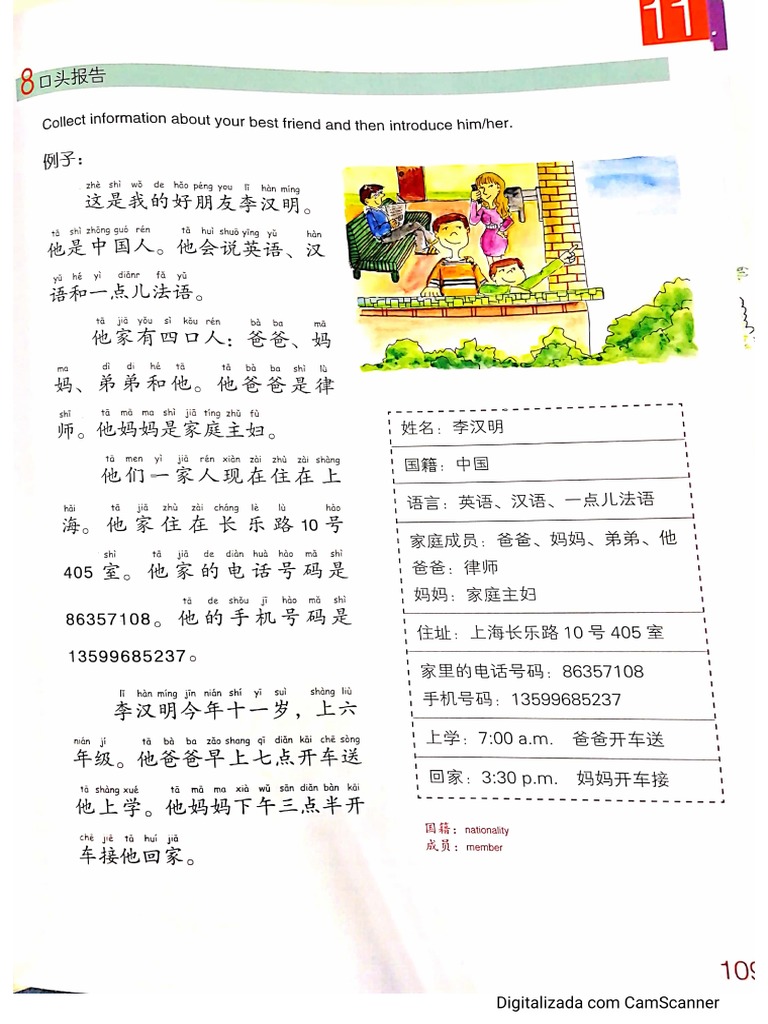 11
8 口头报告
Collect information about your best friend and then introduce him/her.
例子：
zhè shì wǒ de hǎo péng you lǐ hàn míng
这是我的好朋友李汉明。
tā shì zhōng guó rén tā huì shuō yīng yǔ hàn
他是中国人。他会说英语、汉
yǔ hé yì diǎnr fǎ yǔ
语和一点儿法语。
tā jiā yǒu sì kǒu rén bà ba mā
他家有四口人：爸爸、妈
ma dì di hé tā tā bà ba shì lǜ
妈、弟弟和他。他爸爸是律
shī tā mā ma shì jiā tíng zhǔ fù
师。他妈妈是家庭主妇。
tā men yì jiā rén xiàn zài zhù zài shàng
他们一家人现在住在上
hǎi tā jiā zhù zài cháng lè lù hào
海。他家住在长乐路10号
shì tā jiā de diàn huà hào mǎ shì
405室。他家的电话号码是
tā de shǒu jī hào mǎ shì
86357108。他的手机号码是
13599685237。
lǐ hàn míng jīn nián shí yī suì shàng liù
李汉明今年十一岁，上六
nián jí tā bà ba zǎo shang qī diǎn kāi chē sòng
年级。他爸爸早上七点开车送
tā shàng xué tā mā ma xià wǔ sān diǎn bàn kāi
他上学。他妈妈下午三点半开
chē jiē tā huí jiā
车接他回家。
姓名：李汉明
国籍：中国
语言：英语、汉语、一点儿法语
家庭成员：爸爸、妈妈、弟弟、他
爸爸：律师
妈妈：家庭主妇
住址：上海长乐路10号405室
家里的电话号码：86357108
手机号码：13599685237
上学：7:00 a.m. 爸爸开车送
回家：3:30 p.m. 妈妈开车接
国籍：nationality
成员：member
109
Digitalizada com CamScanner